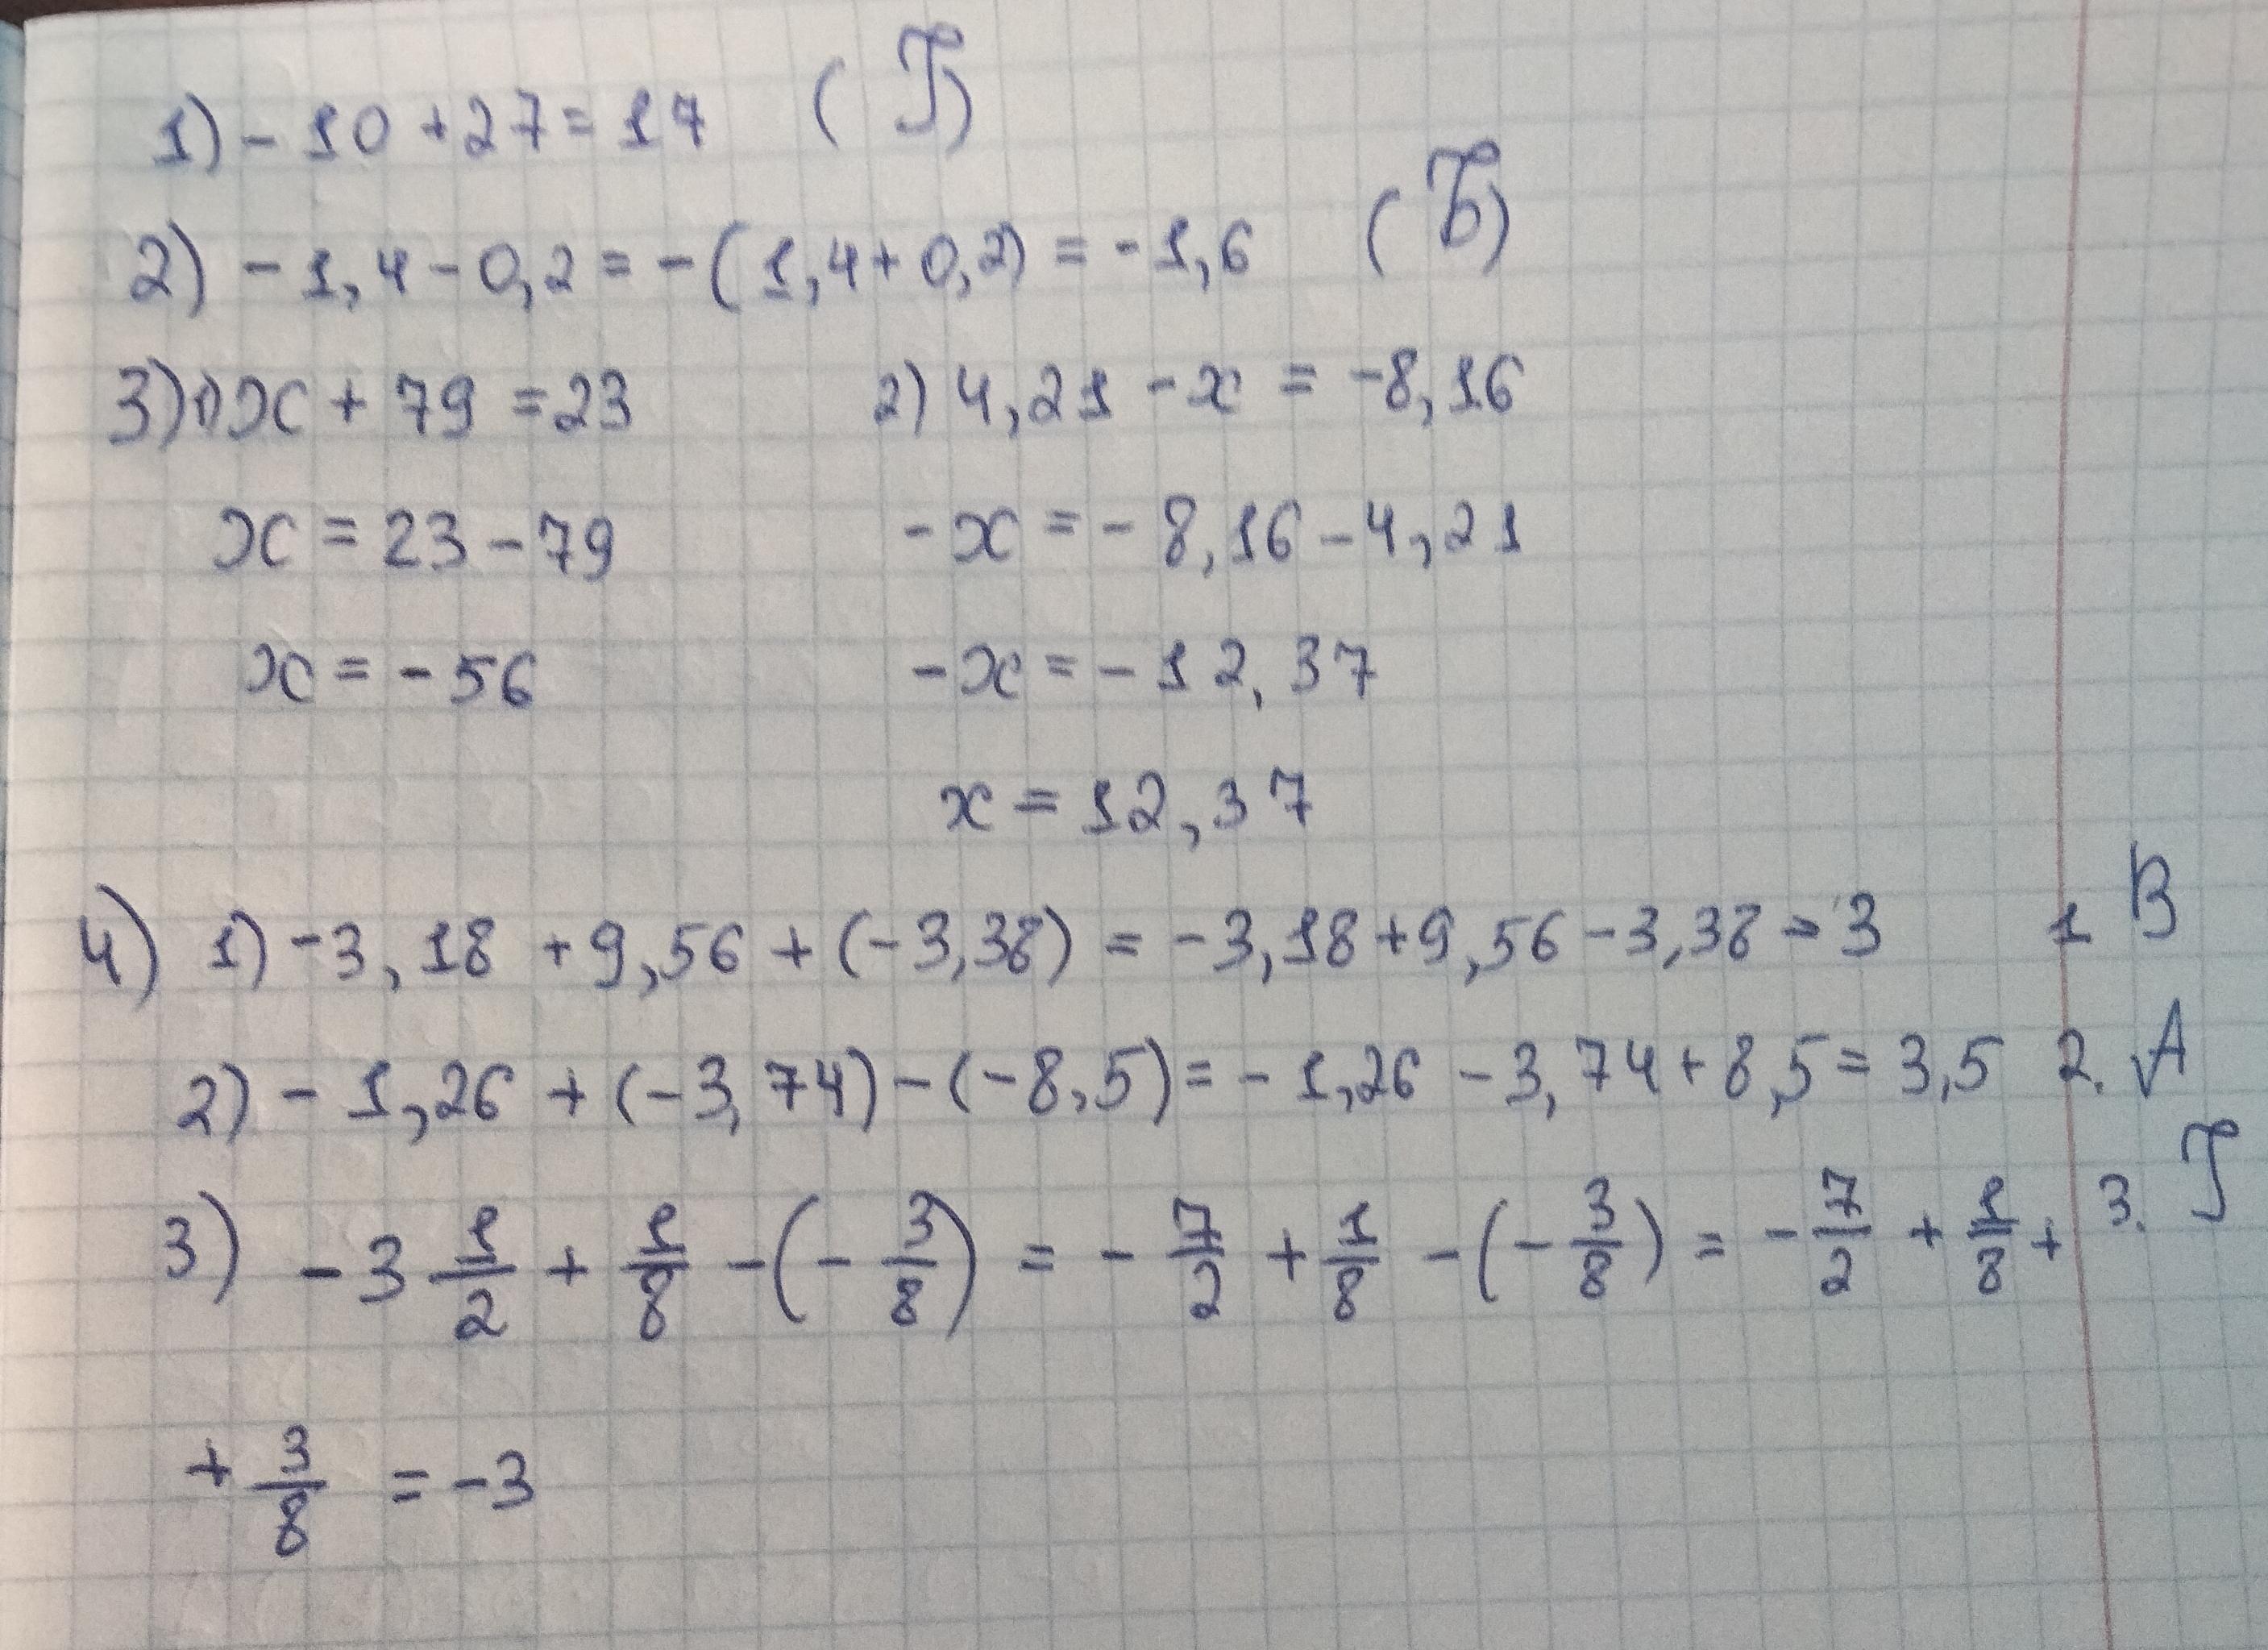 1) - 10 + 27 = 17 (Г)
2) - 1,4 - 0,2 = - (1,4 + 0,2) = - 1,6 (Б)
3) 1) x + 79 = 23 2) 4,21 - x = -8,16
x = 23 - 79 - x = - 8,16 - 4,21
x = - 56 - x = - 12,37
x = 12,37
4) 1) -3,18 + 9,56 + (-3,38) = -3,18 + 9,56 - 3,38 = 3 1 В
2) - 1,26 + (-3,74) - (-8,5) = - 1,26 - 3,74 + 8,5 = 3,5 2. А
3) - 3 1/2 + 1/8 - (- 3/8) = - 7/2 + 1/8 - (- 3/8) = - 7/2 + 1/8 + 3. Г
+ 3/8 = -3